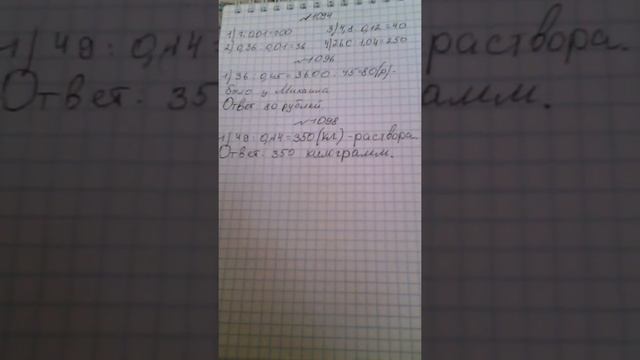 №1094
1) 7:0,01=700 3) 4,8:0,12=40
2) 0,36:0,01=36 4) 260:1,04=250
№1096
1) 36:0,45=3600:45=80(р)-
было у Михаила
Ответ: 80 рублей.
№1098
1) 49:0,14=350(кг)-раствора.
Ответ: 350 килограмм.